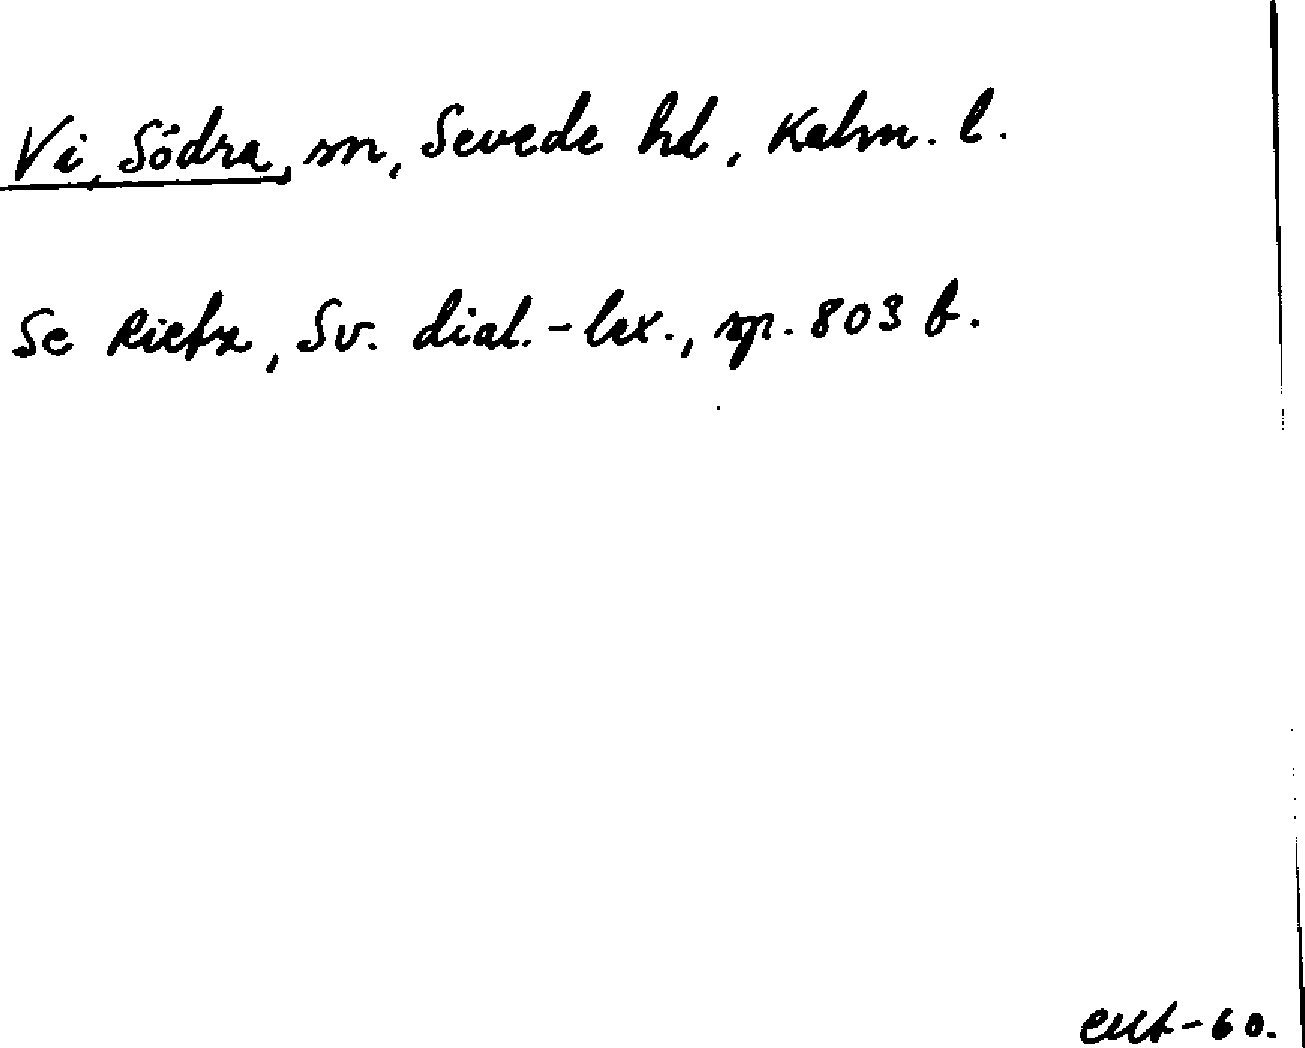 Vi, Södra, sn, Sevede hd, Kalm. l.
Se Rietz, Sv. dial.-lex., sp. 803 b.
-60.